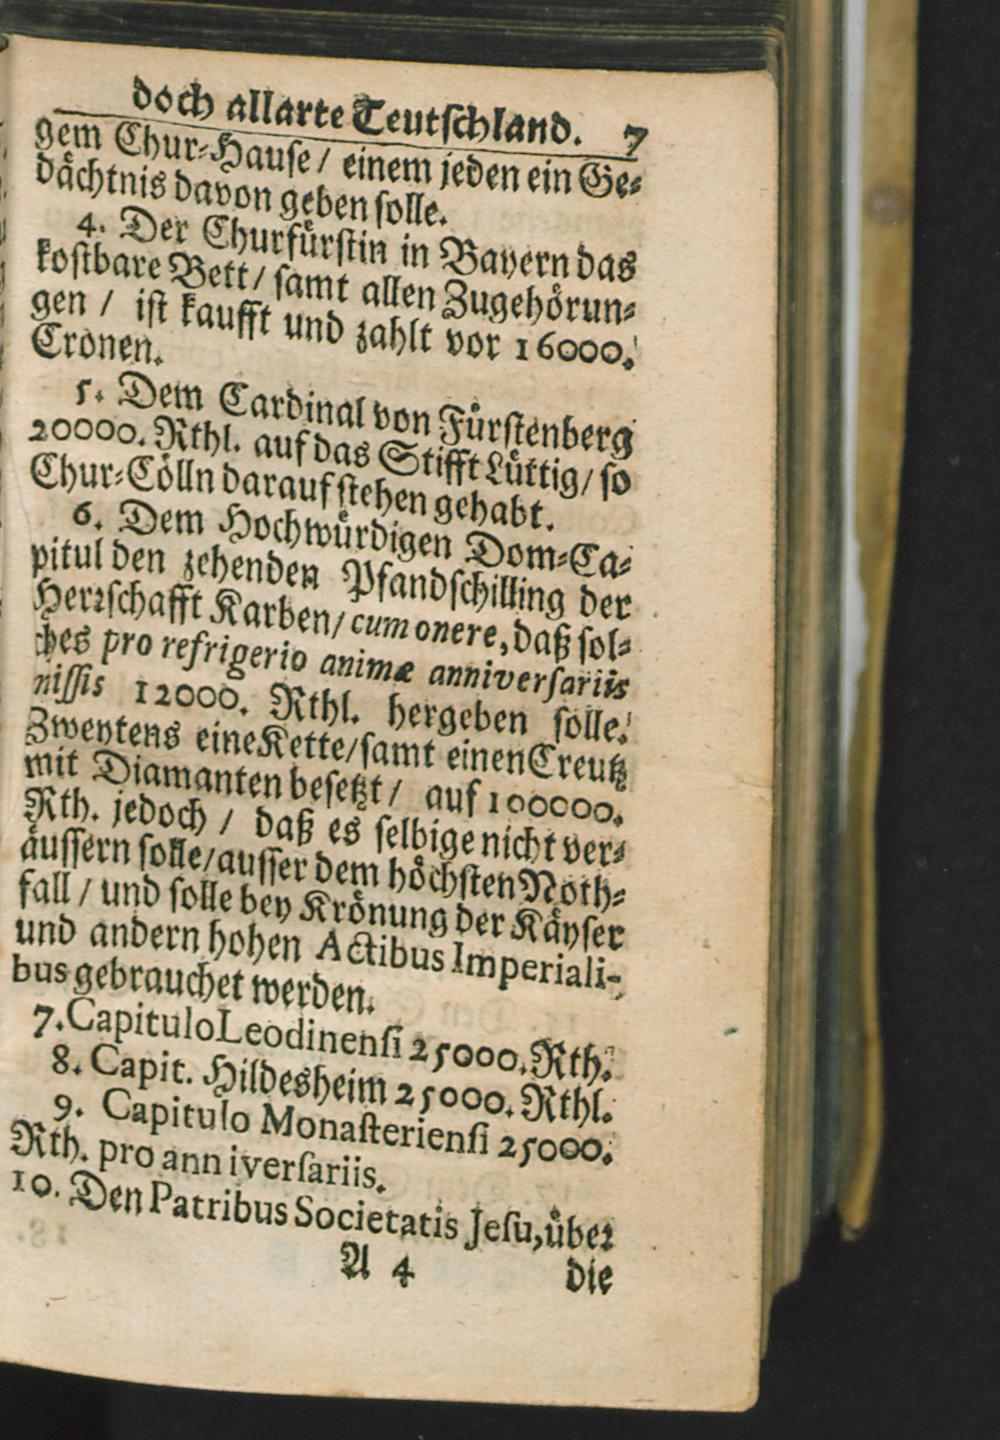 doch allarte Teutſchland. 7
gem Chur-Hauſe / einem jeden ein Ge-
dåchtnis davon geben ſolle.
4. Der Churfůrſtin in Bayern das
koſtbare Bett / ſamt allen Zugehǒrun-
gen / iſt kaufft und zahlt vor 16000.
Cronen.
5. Dem Cardinal von Fůrſtenberg
20000. Rthl. auf das Stifft Lůttig / ſo
Chur-Cǒlln darauf ſtehen gehabt.
6. Dem Hochwůrdigen Dom-Ca-
pitul den zehenden Pfandſchilling der
Herꝛſchafft Karben / cum onere, daß ſol-
ches pro refrigerio animæ anniverſariis
niſſis 12000. Rthl. hergeben ſolle.
Zweytens eine Kette / ſamt einen Creutz
mit Diamanten beſetzt / auf 100000.
Rth. jedoch / daß es ſelbige nicht ver-
åuſſern ſolle / auſſer dem hǒchſten Noth-
fall / und ſolle bey Krǒnung der Kåyſer
und andern hohen Actibus Imperiali-
bus gebrauchet werden.
7. Capitulo Leodinenſi 25000. Rth.
8. Capit. Hildesheim 25000. Rthl.
9. Capitulo Monaſterienſi 25000.
Rth. pro anniverſariis.
10. Den Patribus Societatis Jeſu, ůbeꝛ
A 4 die